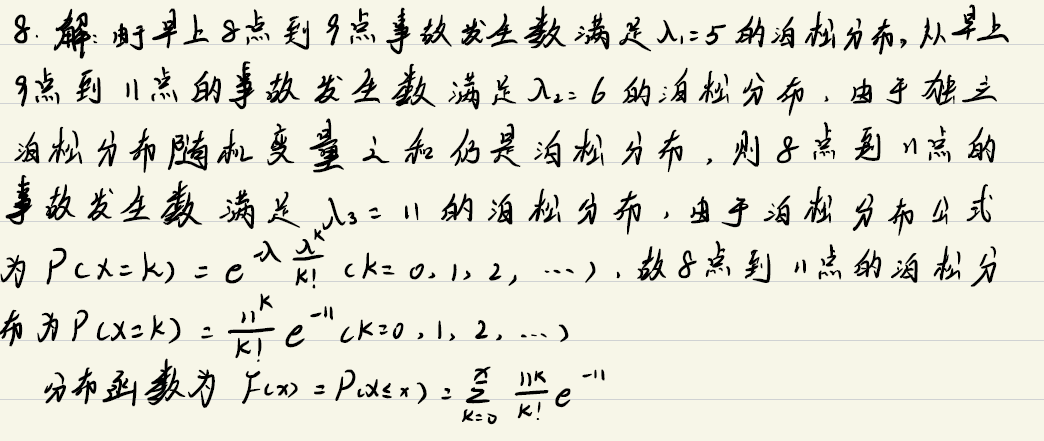 8. 解: 由于早上8点到9点事故发生数满足λ₁=5的泊松分布, 从早上
9点到11点的事故发生数满足λ₂=6的泊松分布, 由于独立
泊松分布随机变量之和仍是泊松分布, 则8点到11点的
事故发生数满足λ₃=11的泊松分布, 由于泊松分布公式
为 P(X=k) = e^{-λ} λ^k/k! (k=0,1,2,…), 故8点到11点的泊松分
布为 P(X=k) = 11^k/k! e^{-11} (k=0,1,2,…)
分布函数为 F(x) = P(X≤x) = ∑_{k=0}^{x} 11^k/k! e^{-11}